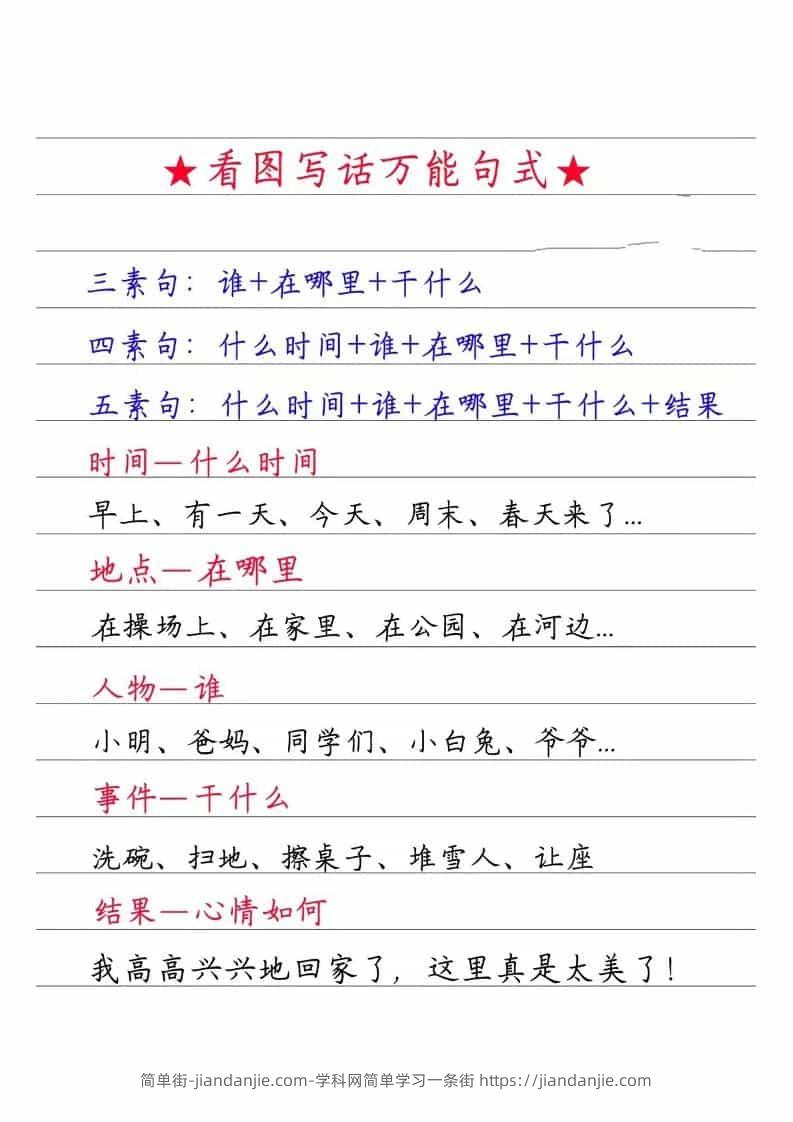 ★看图写话万能句式★
三素句：谁+在哪里+干什么
四素句：什么时间+谁+在哪里+干什么
五素句：什么时间+谁+在哪里+干什么+结果
时间—什么时间
早上、有一天、今天、周末、春天来了...
地点—在哪里
在操场上、在家里、在公园、在河边...
人物—谁
小明、爸妈、同学们、小白兔、爷爷...
事件—干什么
洗碗、扫地、擦桌子、堆雪人、让座
结果—心情如何
我高高兴兴地回家了，这里真是太美了！
简单街-jiandanjie.com-学科网简单学习一条街 https://jiandanjie.com